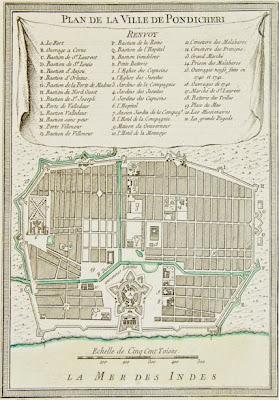 PLAN DE LA VILLE DE PONDICHERI
RENVOY
A. Le Fort
B. Ouvrage a Corne
C. Bastion de St Laurent
D. Bastion de St Louis
E. Bastion d'Anjou
F. Bastion d'Orleans
G. Bastion de la Porte de Madras
H. Bastion du Nord Ouest
I. Bastion de St Joseph
K. Porte de Valdaour
L. Bastion Valdaour
M. Bastion sans peur
N. Porte Villenour
O. Bastion de Villenour
P. Bastion de la Reine
Q. Bastion de l'Hopital
R. Bastion
S. Petite Batterie
1. l'Eglise des Capucins
2. l'Eglise des Jesuites
3. Jardins de la Compagnie
4. Jardins des Jesuites
5. Jardins des Capucins
6. l'Hopital
7. Ancien Jardin de la Compagie
8. l'Hotel de la Compagnie
9. Maison du Gouverneur
10. l'Hotel de la Monnoye
11. Cimetiere des Malabares
12. Cimetiere des François
13. Grand Marché
14. Prison des Malabares
15. Ouvrages neufs faits en
1740 et 1741
16. Ouvrages de 1741
17. Marché de St Laurent
18. Baterie des
19. Place du Mae
20. Les
21. la grande Pagode
Echelle de Cinq Cent Toises
100 200 300 400 500
LA MER DES INDES